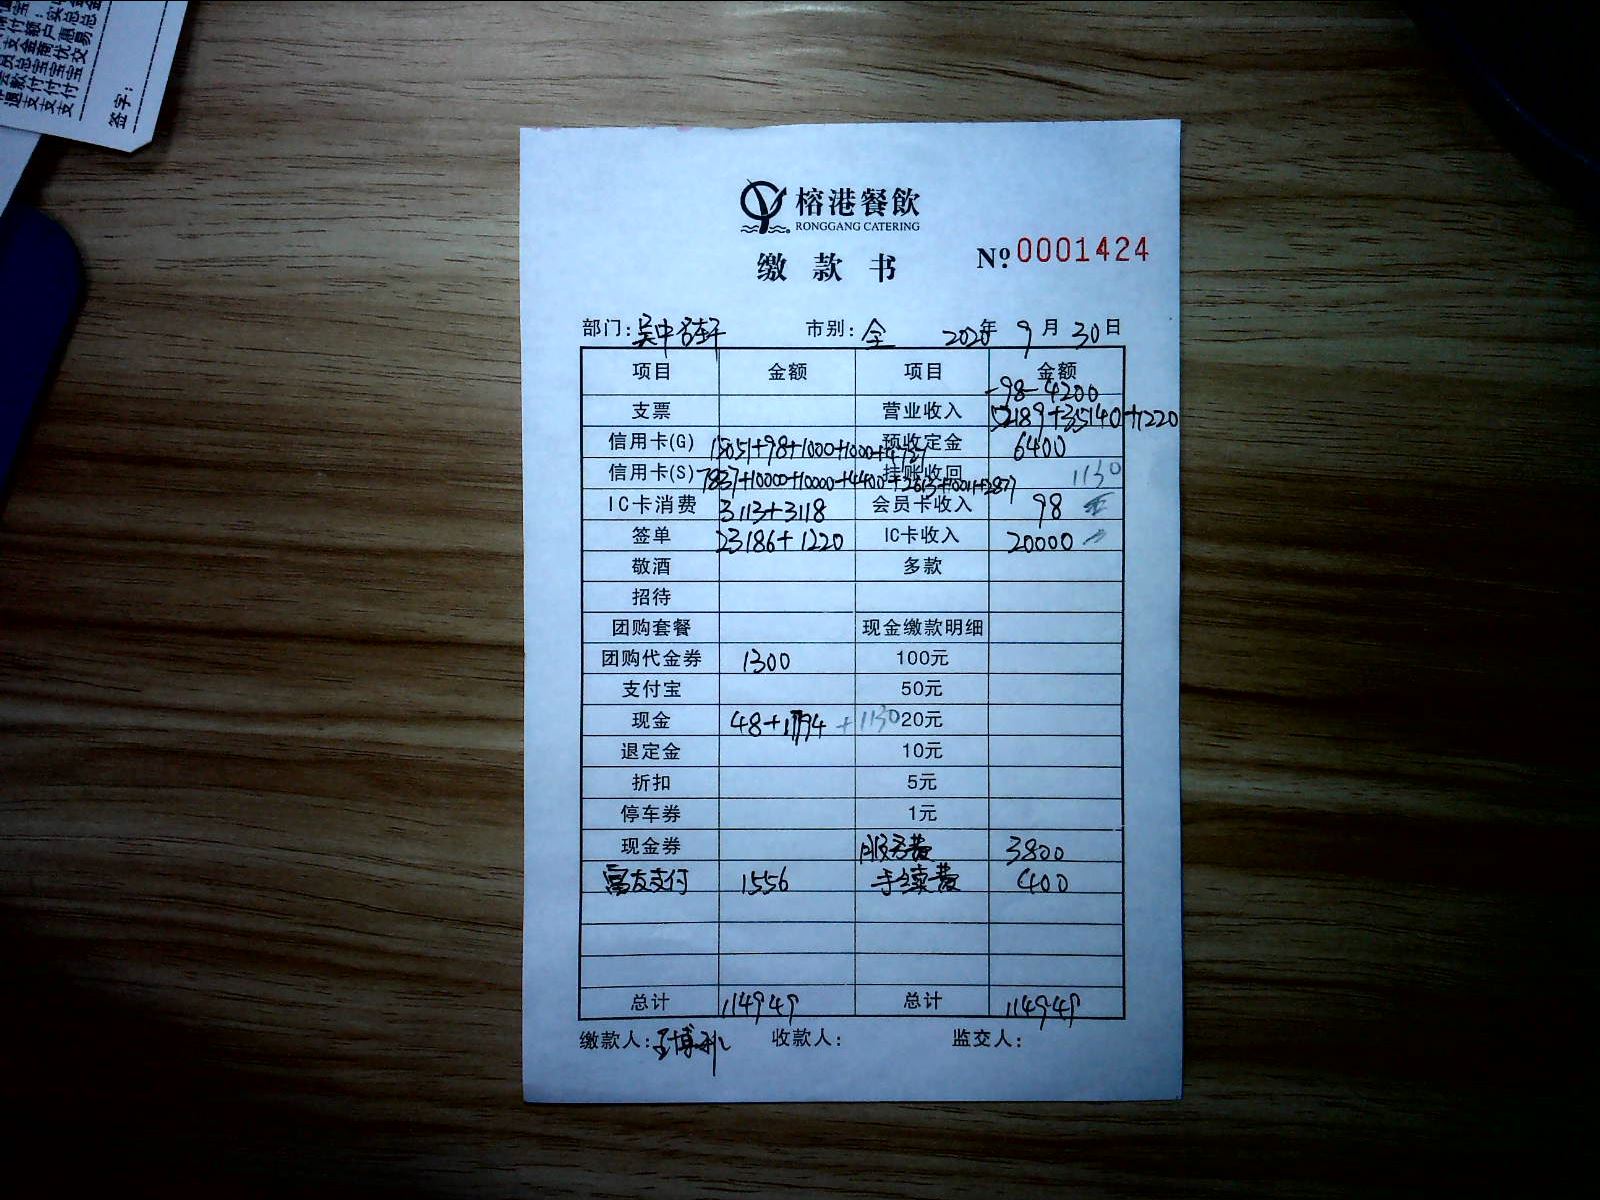 签字:
榕港餐飲
RONGGANG CATERING
缴款书 Nº 0001424
部门: 吴中 市别: 全 2020年 9月 30日
项目 金额 项目 金额
-98-4200
支票 营业收入 52189+35140+1220
信用卡(G) 15051+98+1000+1000+4727 预收定金 6400
信用卡(S) 7837+10000+10000+4400+2613 挂账收回 1130
IC卡消费 3113+3118 会员卡收入 98
签单 23186+1220 IC卡收入 20000
敬酒 多款
招待
团购套餐 现金缴款明细
团购代金券 1300 100元
支付宝 50元
现金 48+1794 +1130 20元
退定金 10元
折扣 5元
停车券 1元
现金券 服务费 3800
富友支付 1556 手续费 400
总计 114949 总计 114949
缴款人: 收款人: 监交人: